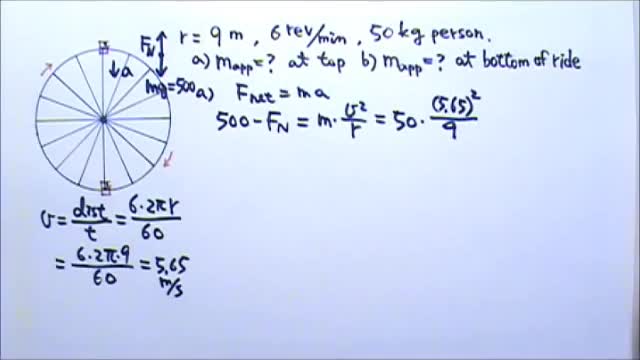 r = 9 m , 6 rev/min , 50 kg person.
a) m_app = ? at top b) m_app = ? at bottom of ride
F_N
↓a
mg = 500
a) F_net = ma
500 - F_N = m · v²/r = 50 · (5.65)²/9
v = dist/t = 6·2πr/60
= 6·2π·9/60 = 5.65 m/s